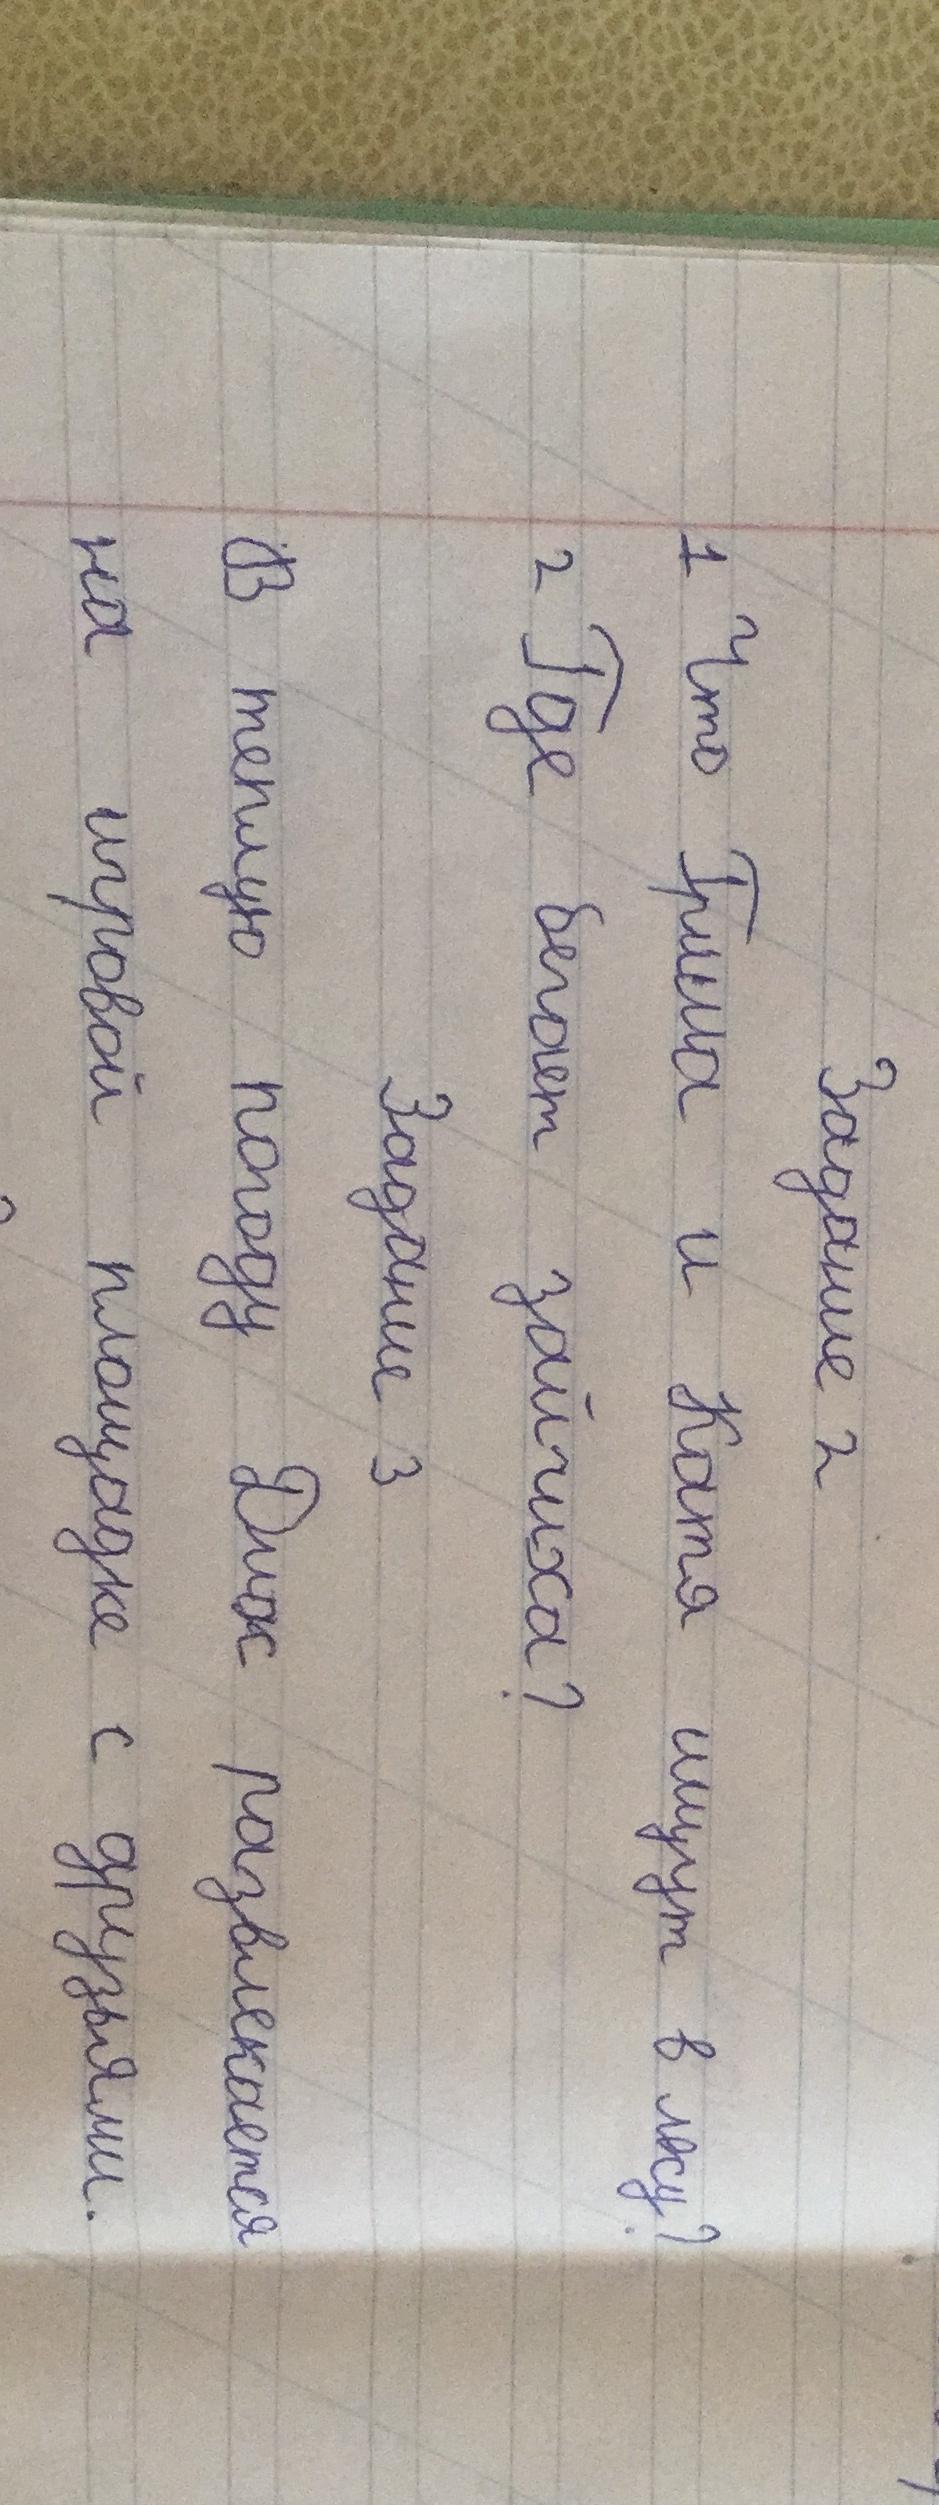 Задание 2
1 Что Гриша и Катя ищут в лесу?
2 Где бегает зайчиха?
Задание 3
В теплую погоду Дик развлекается
на игровой площадке с друзьями.